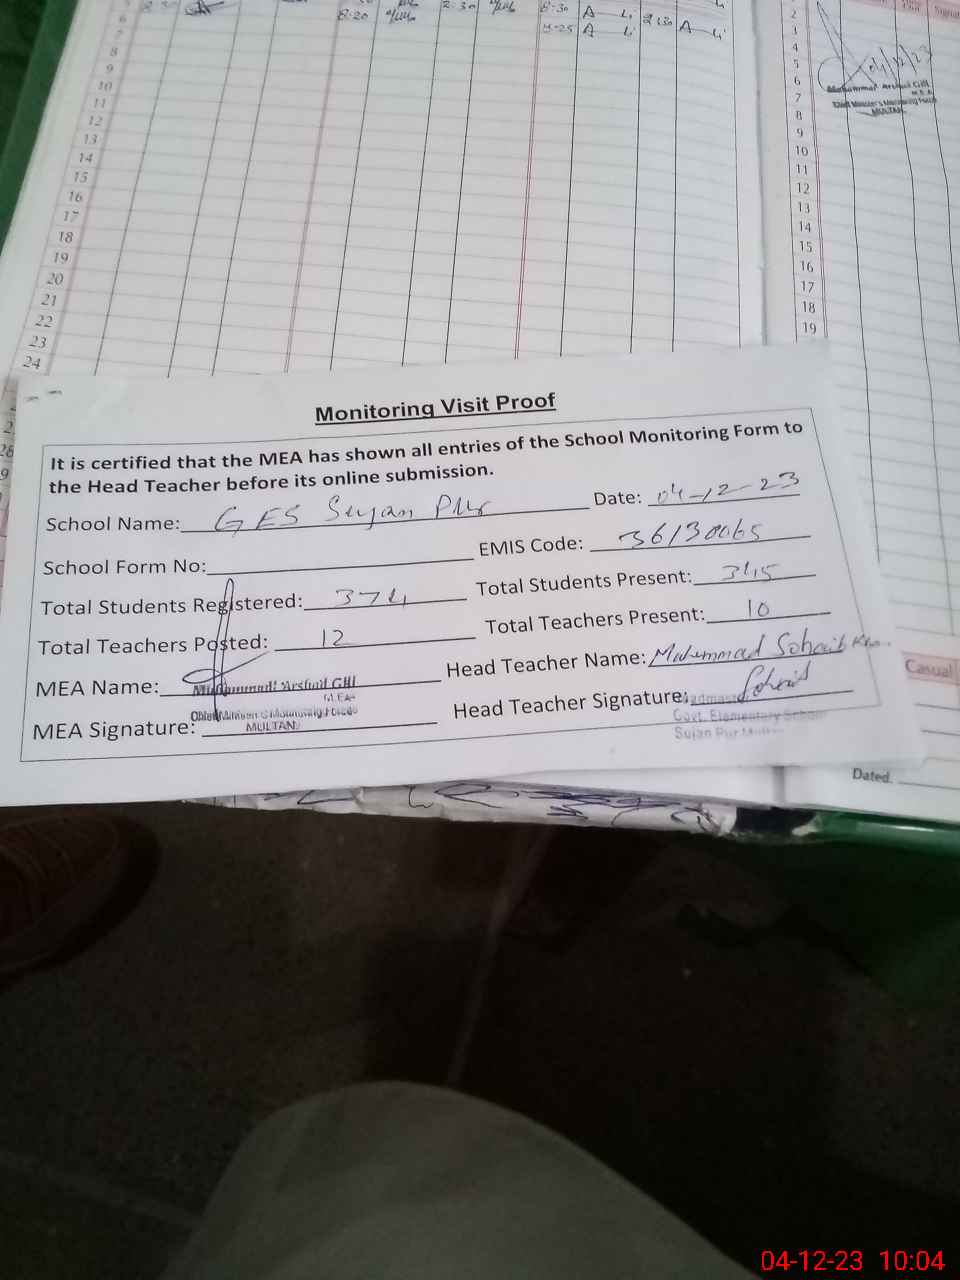 5 8:30
6 8:20 2:30 8:30 A L 2:30 A L
7
8
9
10
11
12
13
14
15
16
17
18
19
20
21
22
23
24
28
2
3
4
5
6
7
8
9
10
11
12
13
14
15
16
17
18
19
04/12/23
Muhammad Arshad Gill
M.E.A
Chief Minister's Monitoring Force
MULTAN
Monitoring Visit Proof
It is certified that the MEA has shown all entries of the School Monitoring Form to
the Head Teacher before its online submission.
School Name: GES Sujan Pur Date: 04-12-23
School Form No: EMIS Code: 36130065
Total Students Registered: 374 Total Students Present: 345
Total Teachers Posted: 12 Total Teachers Present: 10
MEA Name: Muhammad Arshad Gill Head Teacher Name: Muhammad Sohaib Khan
M.E.A
Chief Minister's Monitoring Force
MULTAN
MEA Signature: Head Teacher Signature: Sohaib
Headmaster
Govt. Elementary School
Sujan Pur Multan
Casual
Dated.
04-12-23 10:04